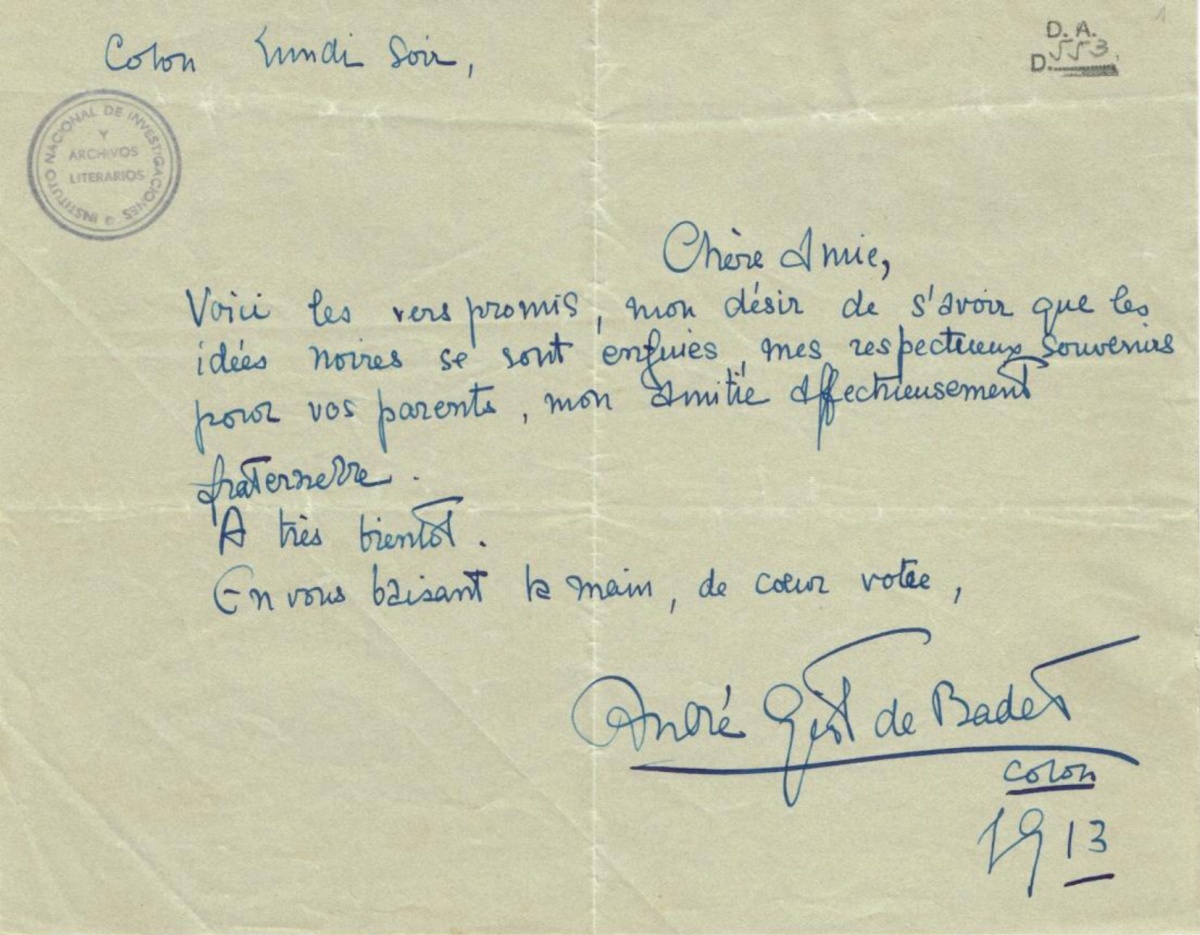 Colon Lundi Soir,
1
D. A.
D. 553.
INSTITUTO NACIONAL DE INVESTIGACIONES
Y
ARCHIVOS
LITERARIOS
Chère Amie,
Voici les vers promis, mon désir de s'avoir que les
idées noires se sont enfuies, mes respectueux souvenirs
pour vos parents, mon amitié affectueusement
fraternelle.
A très bientôt.
En vous baisant la main, de cœur votre,
André Gist de Badet
Colon
1913